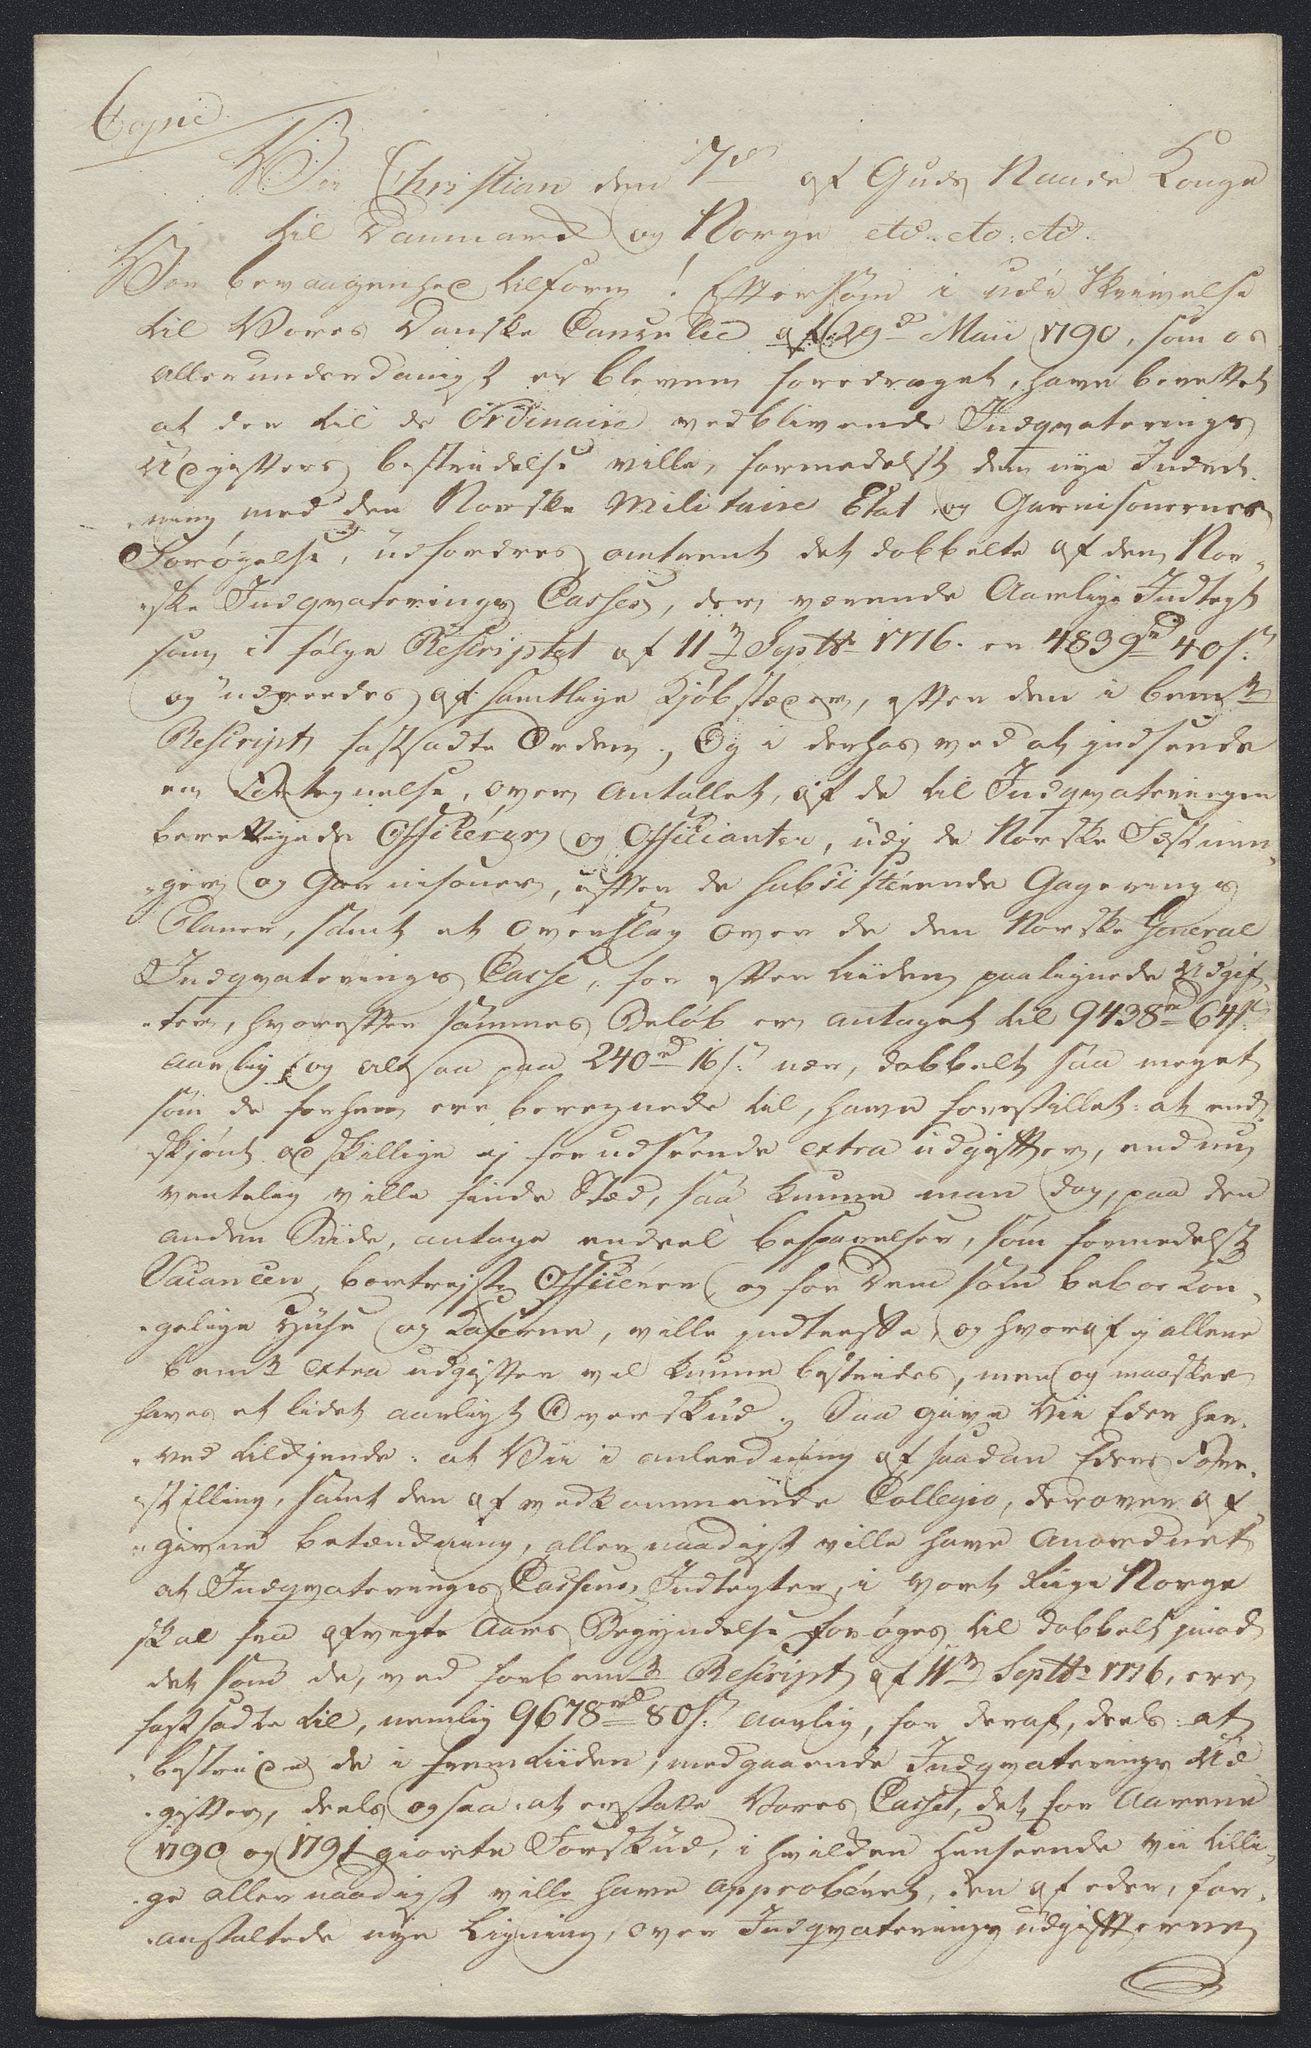 Copie.
Wii Christian den 7de af Guds Naade Konge
til Danmark og Norge etc. etc. etc.
Vor bevaagenhed tilforn! Eftersom i udi Skrivelse
til Vores Danske Cancelie af 29de Maii 1790, som os
allerunderdanigst er bleven foredraget, have berettet
at der til de Ordinaire vedblivende Indqvarterings
Udgifters bestridelse ville, formedelst den nye Indret-
-ning med den Norske Militaire Etat og Garnisonernes
Forøgelse, udfordres omtrent det dobbelte af den Nor-
-ske Indqvarterings Casses, der værende Aarlige Indtegt
som i følge Rescriptet af 11te Septbr 1776. er 4839rd 40s.
og udreedes af samtlige Kjøbstæder, efter den i bemte
Rescript fastsadte Orden, Og i derhos ved at indsende
en Fortegnelse, over Antallet, af de til Indqvarteringen
berettigede Officerer og Officianter, udi de Norske Fæstnin-
-ger og Garnisoner, efter de subsisterende Gagerings
Planer, samt et Overslag over de den Norske General
Indqvarterings Casse, for efter tiiden paalignede Udgif-
-ter, hvorefter sammes Beløb er antaget til 9438rd 64s.
aarlig, og altsaa paa 240rd 16s. nær, dobbelt saa meget
som de forhen ere beregnede til, have forestillet: at end-
skjønt adskillige ej forudseende extra udgifter, endnu
ventelig ville finde Sted, saa kunne man dog, paa den
anden Siide, antage endeel besparelser, som formedelst
Vacancer, bortrejste Officerer og for Dem som beboe Kon-
-gelige Huse og Caserne, ville indtreffe, og hvoraf ej allene
bemte extra udgifter vel kunne bestrides, men og maaskee
haves et lidet aarligt Overskud; Saa give Vii Eder her-
-ved tilkjende: at Vii i anledning af saadan Eders Fore-
-stilling, samt den af vedkommende Collegio, derover af-
-givne betænkning, allernaadigst ville have Anordnet
at Indqvarterings Cassens Indtegter, i vort Rige Norge
skal fra afvigte Aars Begyndelse forøges til dobbelt imod
det som de, ved forbemte Rescript af 11te Septbr 1776, ere
fastsadte til, nemlig 9678rd 80s. aarlig, for deraf, deels at
bestride de i fremtiiden, medgaaende Indqvarterings Ud-
-gifter, deels ogsaa at erstatte Vores Casse, det for Aarene
1790 og 1791 giorte Forskud, i hvilken henseende vii tilli-
-ge allernaadigst ville have approberet, den af eder, for-
-anstaltede nye Ligning, over Indqvarterings udgifterne